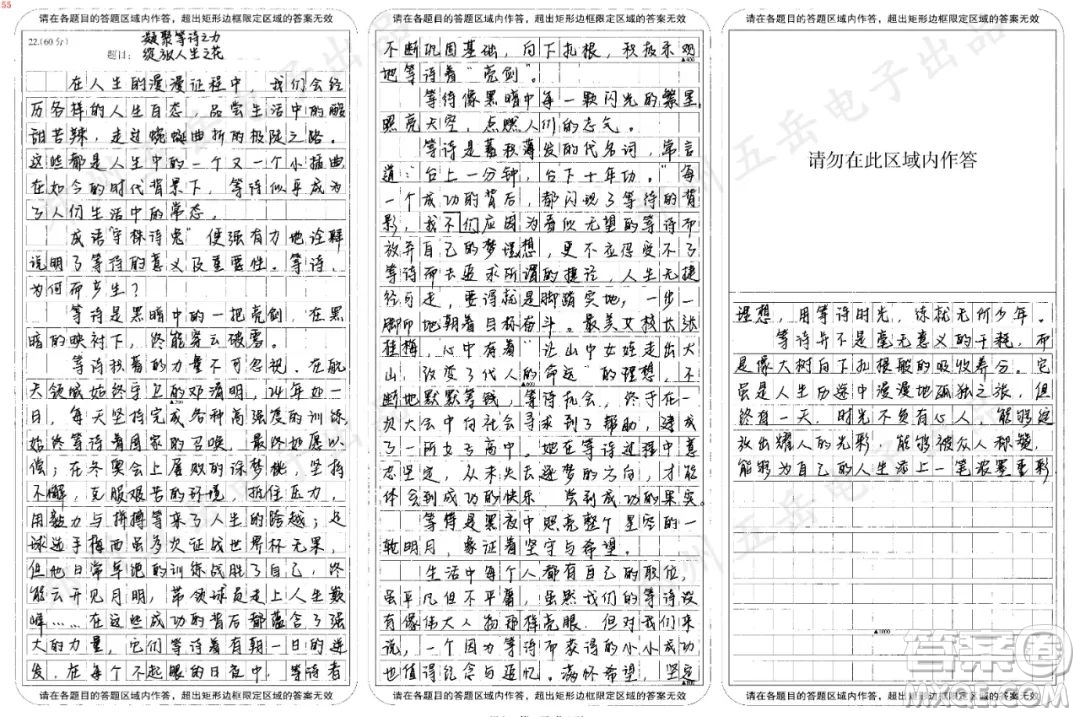 55
请在各题目的答题区域内作答，超出矩形边框限定区域的答案无效
22.(60分)
题目：
凝聚等待之力
绽放人生之花
在人生的漫漫征程中 我们会经
历各样的人生百态，品尝生活中的酸
甜苦辣，走过蜿蜒曲折的极陡之路。
这些都是人生中的一个又一个小插曲
在如今的时代背景下，等待似乎成为
了人们生活中的常态。
成语"守株待兔"便强有力地诠释
说明了等待的意义及重要性。等待，
为何而产生？
等待是黑暗中的一把亮剑，在黑
暗的映衬下，终能穿云破雾。
等待执着的力量不可忽视。在航
天领域始终守卫的邓清明，24年如一
日，每天坚持完成各种高强度的训练
始终等待着国家的召唤，最终如愿以
偿；在冬奥会上屡败的徐梦桃，坚持
不懈，克服艰苦的环境，抵住压力，
用毅力与拼搏等来了人生的跨越；足
球选手梅西虽多次征战世界杯无果，
但他日常艰苦的训练战胜了自己，终
能云开见月明，带领球员走上人生巅
峰……在这些成功的背后都蕴含了强
大的力量，它们等待着有朝一日的迸
发，在每个不起眼的日夜中，等待者
请在各题目的答题区域内作答，超出矩形边框限定区域的答案无效
请在各题目的答题区域内作答，超出矩形边框限定区域的答案无效
不断巩固基础，向下扎根，积极乐观
地等待着"亮剑"。
等待像黑暗中每一颗闪光的繁星
照亮天空，点燃人们的志气。
等待是蓄积薄发的代名词，常言
道："台上一分钟，台下十年功。"每
一个成功的背后，都闪现了等待的背
影，我们不应因为看似无望的等待而
放弃自己的梦理想，更不应得受不了
等待而去追求所谓的捷径，人生无捷
径可走，要得就是脚踏实地，一步一
脚印地朝着目标奋斗。最美女校长张
桂梅，心中有着"让山中女娃走出大
山，改变了代人的命运"的理想，不
断地默默筹钱，等待机会，终于在一
次大会中向社会寻求到了帮助，建成
了一所女子高中。她在等待过程中意
志坚定，从未失去逐梦的方向，才能
体会到成功的快乐 尝到成功的果实。
等待是黑夜中照亮整个星空的一
轮明月，象征着坚守与希望。
生活中每个人都有自己的职位，
虽平凡但不平庸，虽然我们的等待没
有像伟大人物那样亮眼，但对我们来
说，一个因为等待而获得的小小成功
也值得纪念与追忆。满怀希望，坚定
请在各题目的答题区域内作答，超出矩形边框限定区域的答案无效
请在各题目的答题区域内作答，超出矩形边框限定区域的答案无效
请勿在此区域内作答
理想，用等待时光，练就无价少年。
等待并不是毫无意义的干耗，而
是像大树向下扎根般的吸收养分。它
虽是人生历途中漫漫地孤独之旅，但
终有一天，时光不负有心人，能够绽
放出耀人的光彩，能够被众人称赞，
能够为自己的人生添上一笔浓墨重彩
▲1000
请在各题目的答题区域内作答，超出矩形边框限定区域的答案无效
答案圈